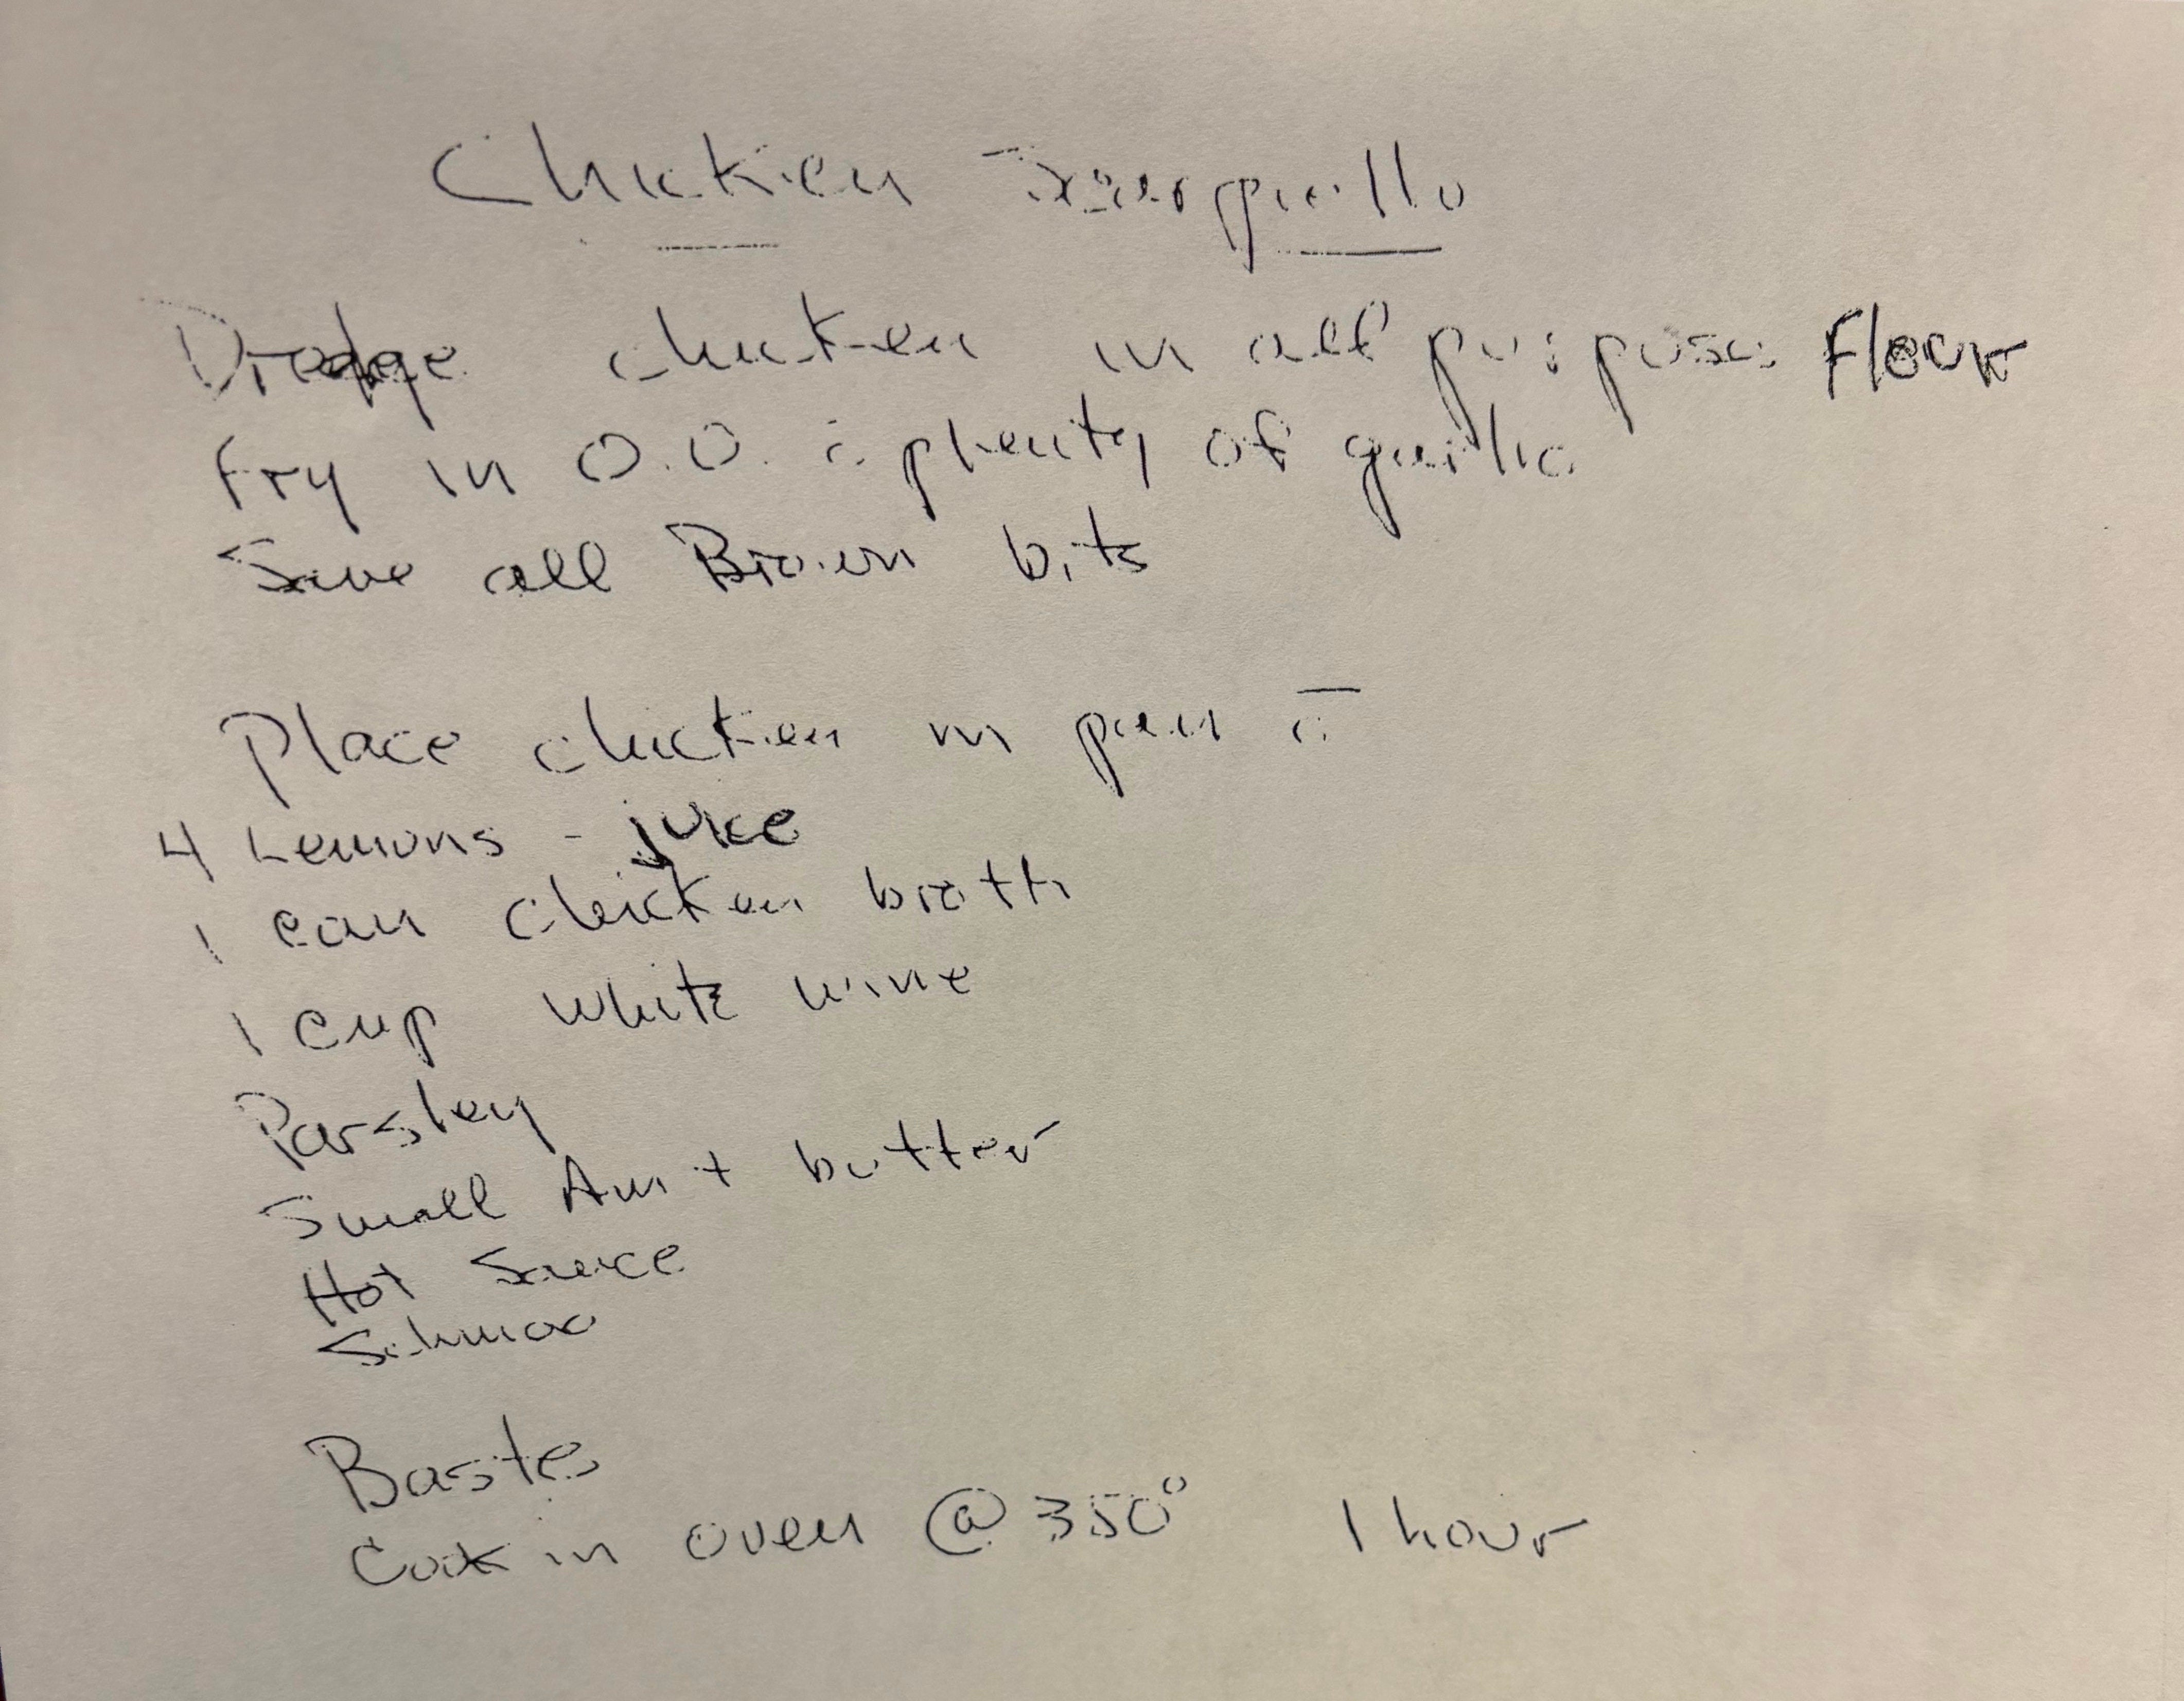 Chicken Scarpiello
Dredge chicken in all purpose Flour
fry in O.O. c plenty of garlic
Save all Brown bits
Place chicken in pan c̄
4 Lemons - juice
1 can chicken broth
1 cup white wine
Parsley
Small Amt butter
Hot Sauce
Bastes
Cook in oven @ 350° 1 hour